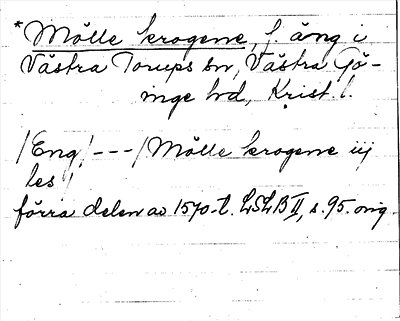 * Mölle krogene, f. äng i
Västra Torups sn, Västra Gö-
inge hd, Krist. l.
/Eng/ --- / Mölle krogene iij
les /
förra delen av 1570-t. LSLB II, s. 95. orig.